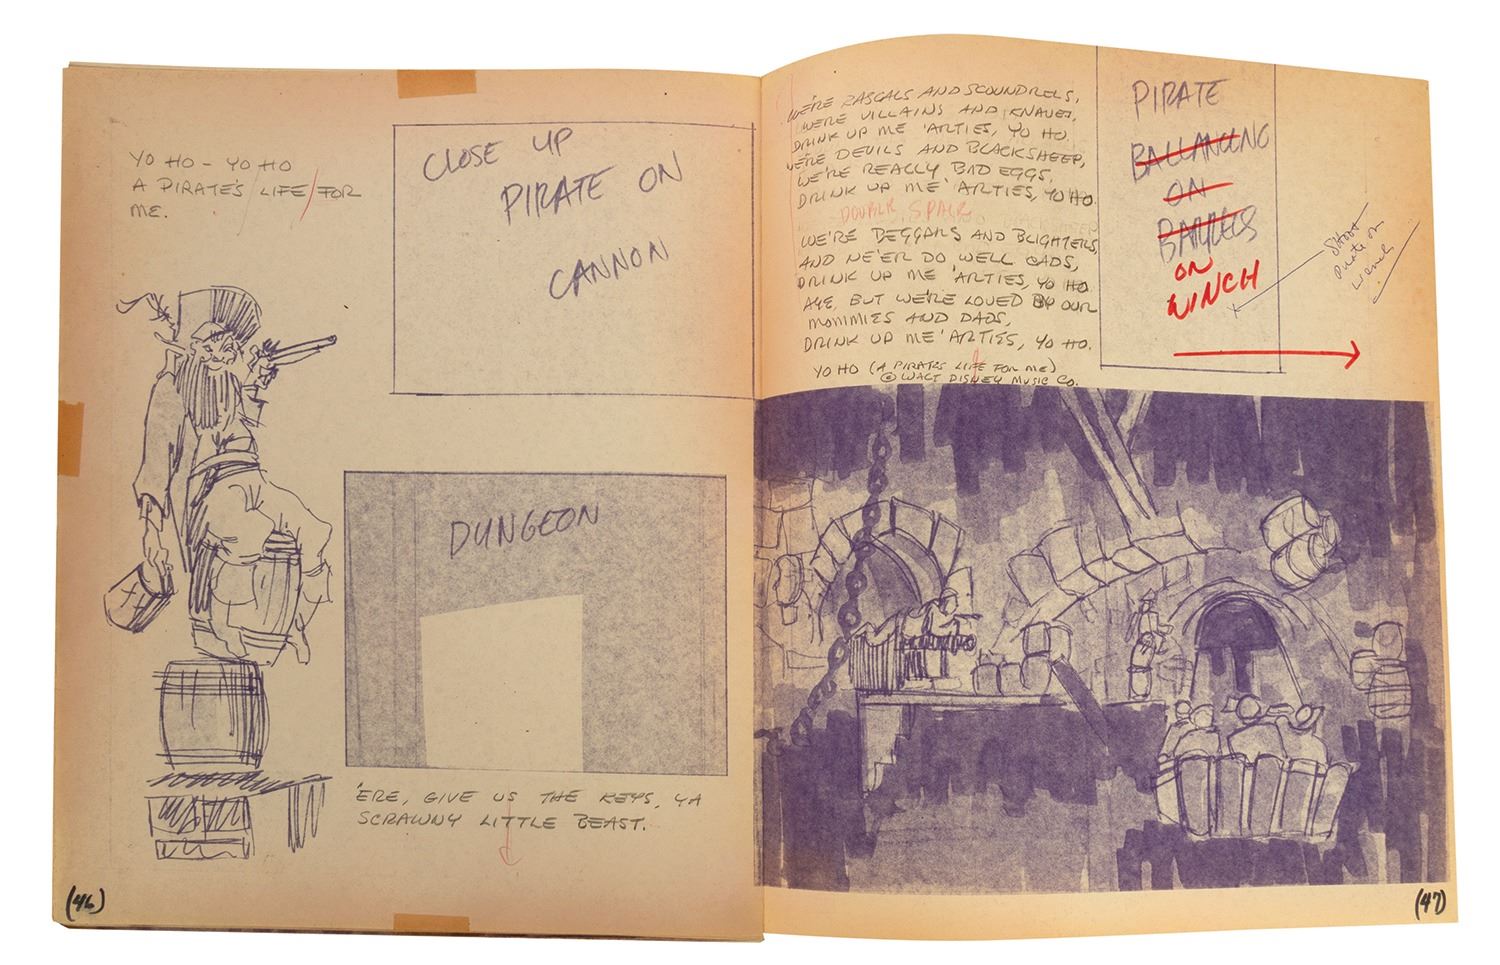 YO HO - YO HO
A PIRATE'S LIFE FOR
ME.
CLOSE UP
PIRATE ON
CANNON
DUNGEON
'ERE, GIVE US THE KEYS, YA
SCRAWNY LITTLE BEAST.
(46)
WE'RE RASCALS AND SCOUNDRELS,
WE'RE VILLAINS AND KNAVES,
DRINK UP ME 'ARTIES, YO HO.
WE'RE DEVILS AND BLACKSHEEP,
WE'RE REALLY BAD EGGS,
DRINK UP ME 'ARTIES, YO HO.
DOUBLE SPACE
WE'RE BEGGARS AND BLIGHTERS,
AND NE'ER DO WELL CADS,
DRINK UP ME 'ARTIES, YO HO
AYE, BUT WE'RE LOVED BY OUR
MOMMIES AND DADS,
DRINK UP ME 'ARTIES, YO HO.
YO HO (A PIRATES LIFE FOR ME)
© WALT DISNEY MUSIC CO.
PIRATE
BALLANCING
ON
BARRELS
ON
WINCH
Shoot
Pirate on
(47)